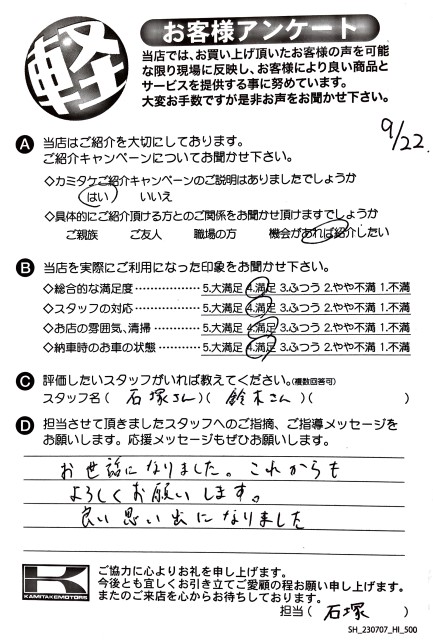 軽
お客様アンケート
当店では、お買い上げ頂いたお客様の声を可能
な限り現場に反映し、お客様により良い商品と
サービスを提供する事に努めています。
大変お手数ですが是非お声をお聞かせ下さい。
9/22
A 当店はご紹介を大切にしております。
ご紹介キャンペーンについてお聞かせ下さい。
◇カミタケご紹介キャンペーンのご説明はありましたでしょうか
はい いいえ
◇具体的にご紹介頂ける方とのご関係をお聞かせ頂けますでしょうか
ご親族 ご友人 職場の方 機会があれば紹介したい
B 当店を実際にご利用になった印象をお聞かせ下さい。
◇総合的な満足度 5.大満足 4.満足 3.ふつう 2.やや不満 1.不満
◇スタッフの対応 5.大満足 4.満足 3.ふつう 2.やや不満 1.不満
◇お店の雰囲気、清掃 5.大満足 4.満足 3.ふつう 2.やや不満 1.不満
◇納車時のお車の状態 5.大満足 4.満足 3.ふつう 2.やや不満 1.不満
C 評価したいスタッフがいれば教えてください。(複数回答可)
スタッフ名( 石塚さん )( 鈴木さん )( )
D 担当させて頂きましたスタッフへのご指摘、ご指導メッセージを
お願いします。応援メッセージもぜひお願いします。
お世話になりました。これからも
よろしくお願いします。
良い思い出になりました
KAMITAKEMOTORS
ご協力に心よりお礼を申し上げます。
今後とも宜しくお引き立てご愛顧の程お願い申し上げます。
またのご来店を心からお待ちしております。
担当( 石塚 )
SH_230707_HI_500